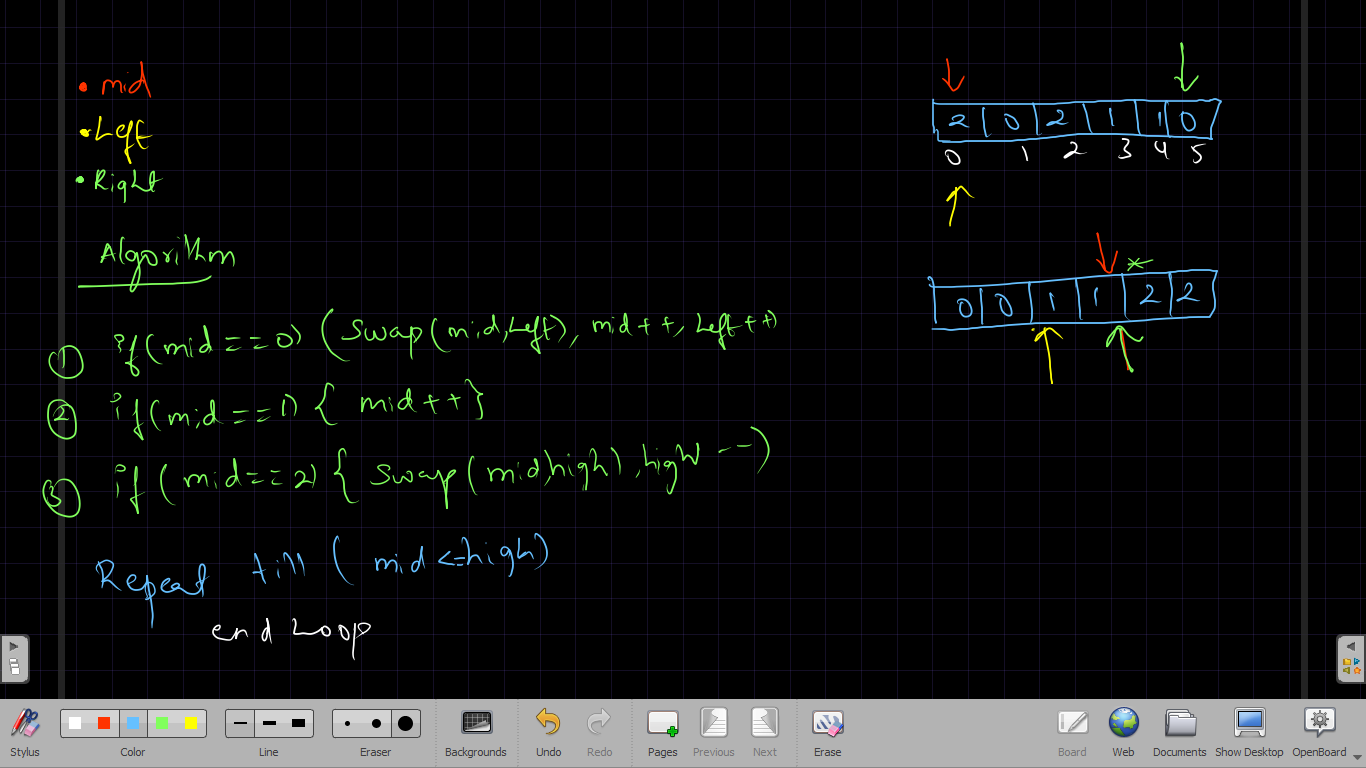 • mid
• Left
• Right
Algorithm
① if(mid==0) (Swap(mid,Left), mid++, Left++)
② if(mid==1) { mid++}
③ if (mid==2) { Swap(mid,high), high --)
Repeat till (mid <=high)
end Loop
2 0 2 1 1 0
0 1 2 3 4 5
*
0 0 1 1 2 2
Stylus Color Line Eraser Backgrounds Undo Redo Pages Previous Next Erase Board Web Documents Show Desktop OpenBoard